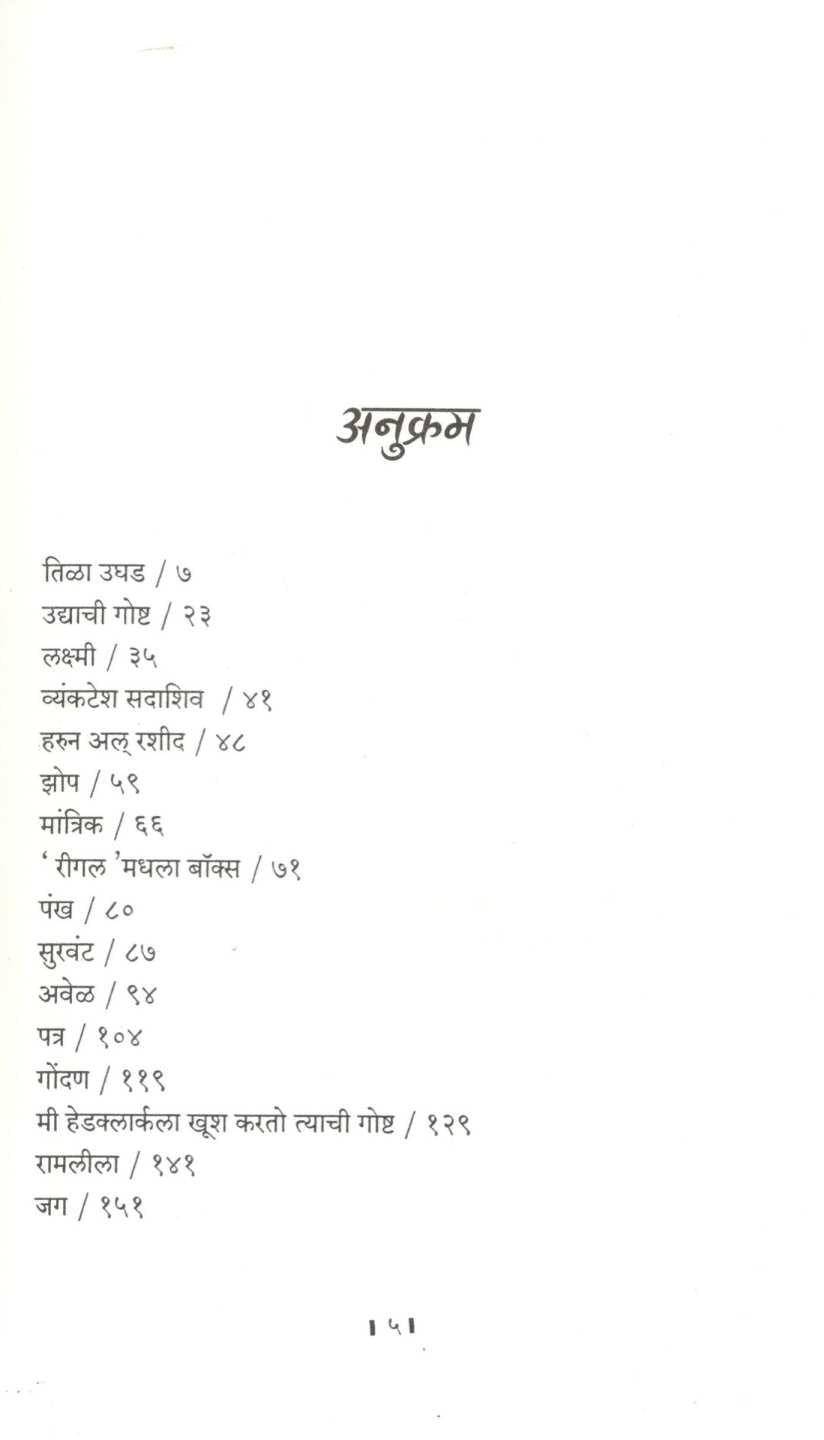 अनुक्रम
तिळा उघड / ७
उद्याची गोष्ट / २३
लक्ष्मी / ३५
व्यंकटेश सदाशिव / ४१
हरुन अल् रशीद / ४८
झोप / ५९
मांत्रिक / ६६
‘ रीगल ’मधला बॉक्स / ७१
पंख / ८०
सुरवंट / ८७
अवेळ / ९४
पत्र / १०४
गोंदण / ११९
मी हेडक्लार्कला खूश करतो त्याची गोष्ट / १२९
रामलीला / १४१
जग / १५१
। ५ ।